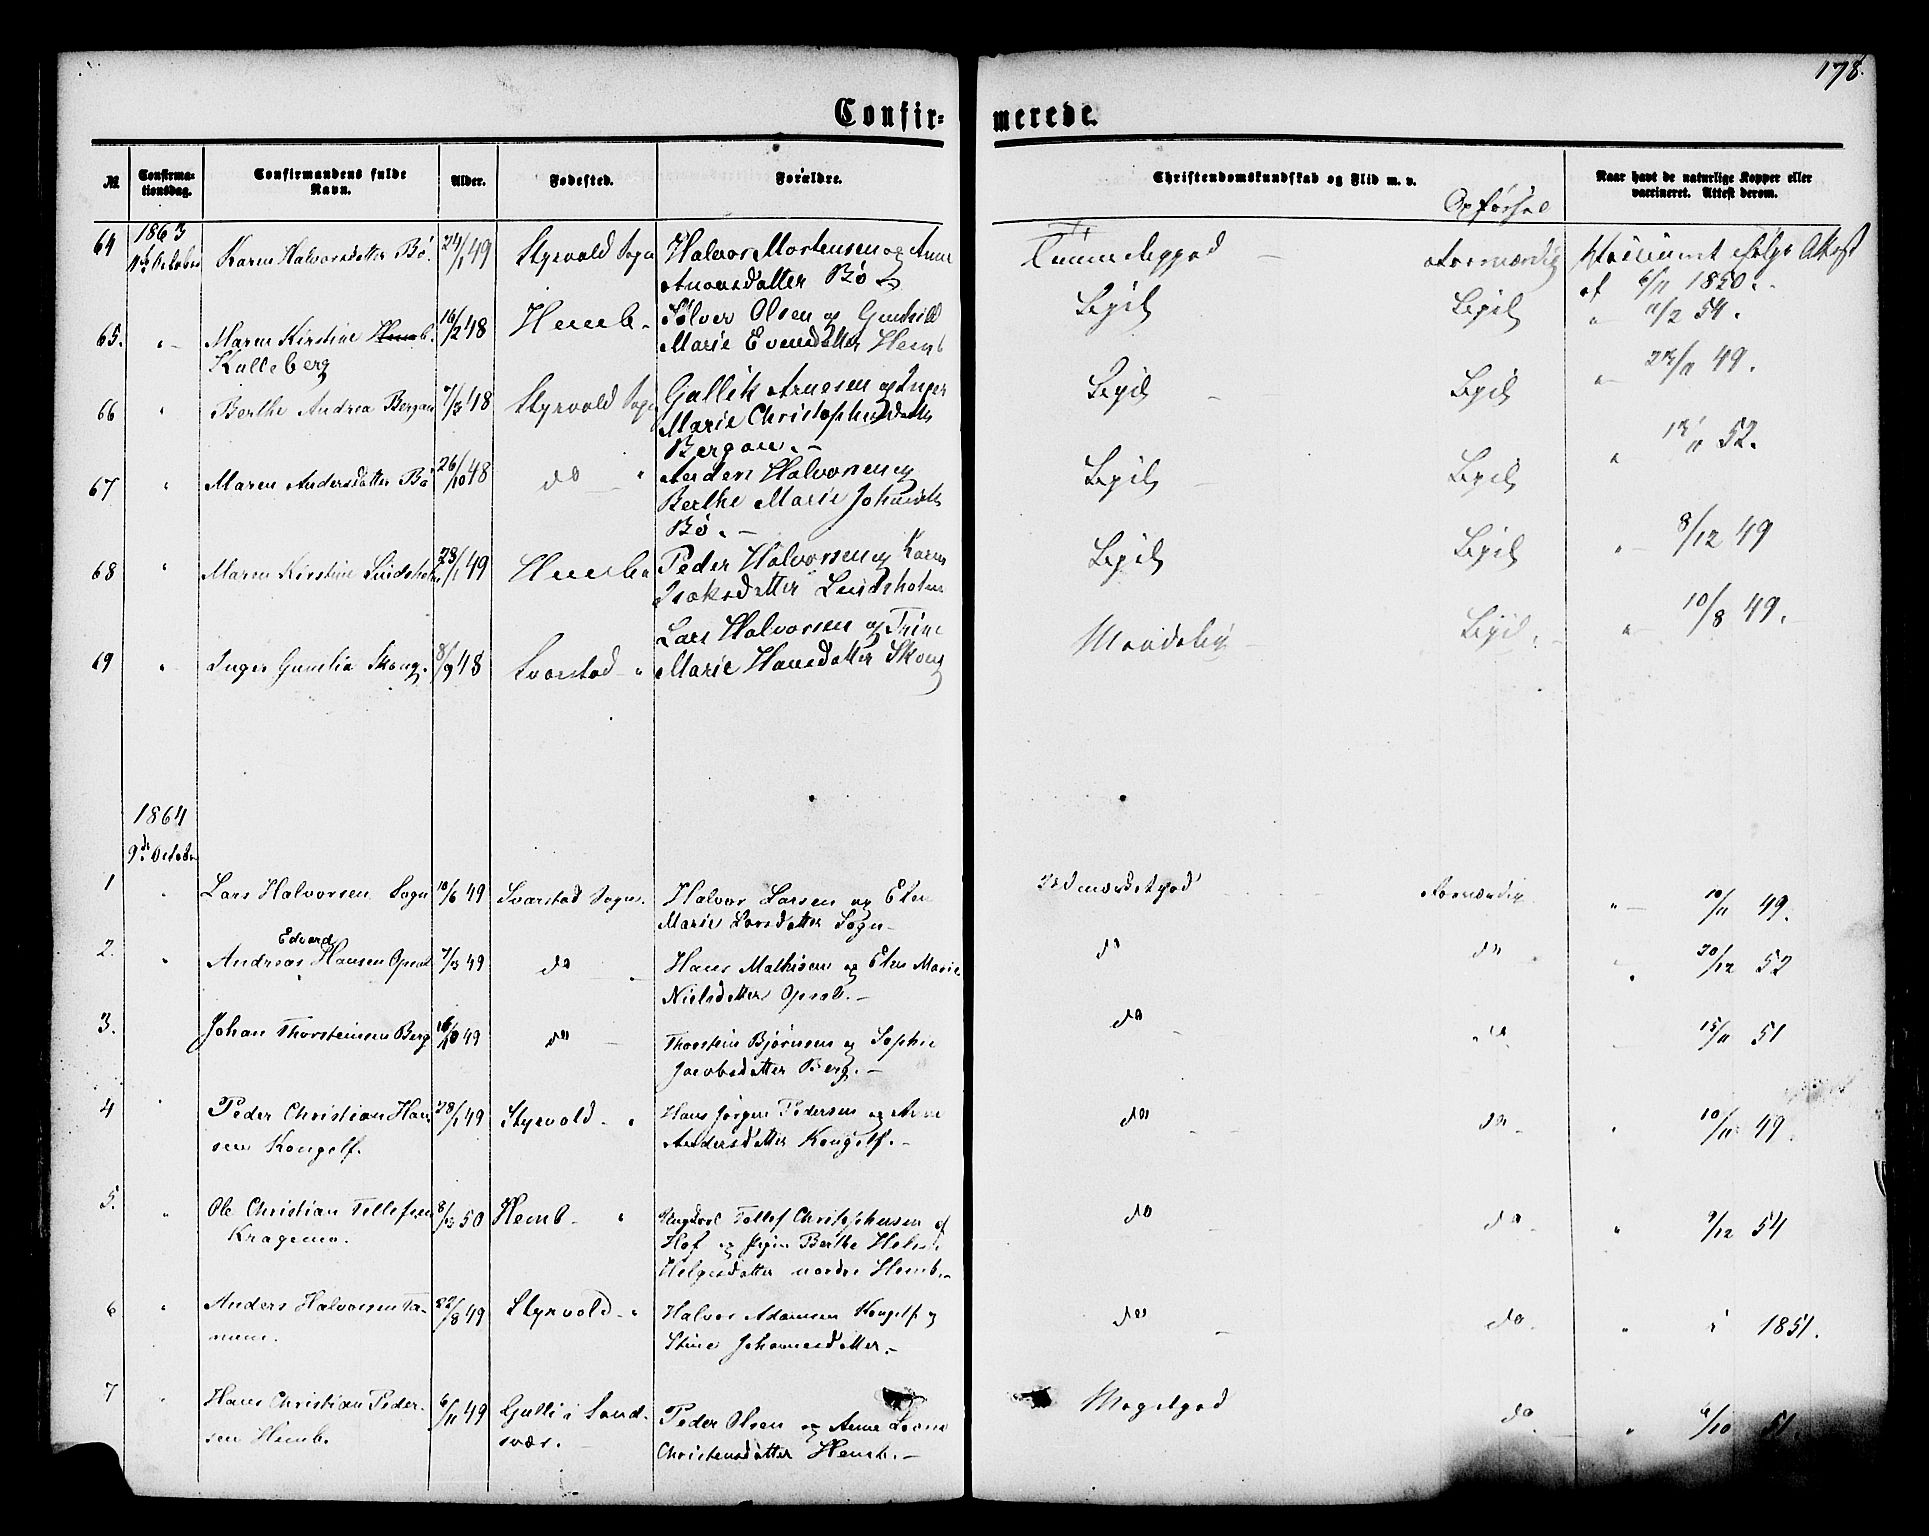 178.
Confirmerede.
№
Confirmationsdag.
Confirmandens fulde Navn.
Alder.
Fødested.
Forældre.
Christendomskundskab og Flid m. v.
Opførsel
Naar havt de naturlige Kopper eller vaccineret. Attest derom.
1863
64 October Karen Halvorsdatter Bø. 24/1 49 Styrvold Sogn Halvor Mortensen og Anne
datter Bø
af 6/11 1850.
65. " Maren Kirstine Hemb. 16/2 48 Hemb Sølver Olsen og Gunhild " 11/2 54.
Kulleberg Marie Evensdatter Hemb
66 " Berthe Andrea Bergan 7/3 48 Styrvold Sogn Gullik Arnesen og Inger " 49.
Marie Christophersdatter
Bergan.
67 " Maren Andersdatter Bø 26/10 48 do " Anders Halvorsen og " 52.
Berthe Marie
Bø.
68 " Maren Kirstine Lindsholm 28/1 49 Hemb Peder Halvorsen og Karen " 8/12 49
Isaksdatter Lindsholm
69 " Inger Gunilia Skoug. 8/9 48 Svarstad " Lars Halvorsen og Trine " 10/8 49.
Marie Hansdatter Skoug
1864
9de October
1 " Lars Halvorsen Sogn 10/6 49 Svarstad Sogn. Halvor Larsen og Elen Udmærketgod " 10/11 49.
Marie Larsdatter Sogn
2. " Andreas Edvard Hansen Opsal 7/3 49 do Hans Mathisen og Elen Marie do do " 20/12 52
Nielsdatter Opsal.
3. Johan Thorsteinsen Berg 16/10 49 do Thorstein Bjørnsen og Sophie do do 15/11 51
Jacobsdatter Berg.
4 " Peder Christian Han- 28/1 49 Styrvold " Hans Jørgen Pedersen og Anne do do " 10/11 49.
sen Kongelf. Andersdatter Kongelf.
5. " Ole Christian Tellefsen 8/3 50 Hemb " Ungkarl Tellef Christophersen af do do " 9/12 54
Kragemo. Hof og Pigen Berthe Helene
Helgesdatter nordre Hemb.
6 " Anders Halvorsen Ta- 22/8 49 Styrvold " Halvor Adamsen Kongelf og do do " i 1851.
nem. Stine Johannesdatter.
7 " Hans Christian Peder- 6/11 49 Gulli i Sand- Peder Olsen og Anne Meget god do " 6/10 51.
sen Hemb. svær. Christensdatter Hemb.